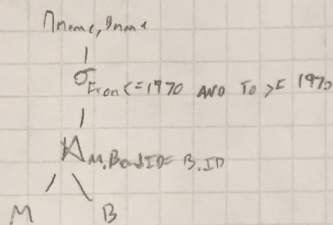 πmname, Bname
σFrom <= 1970 AND To >= 1970
⋈M.BandID= B.ID
M B